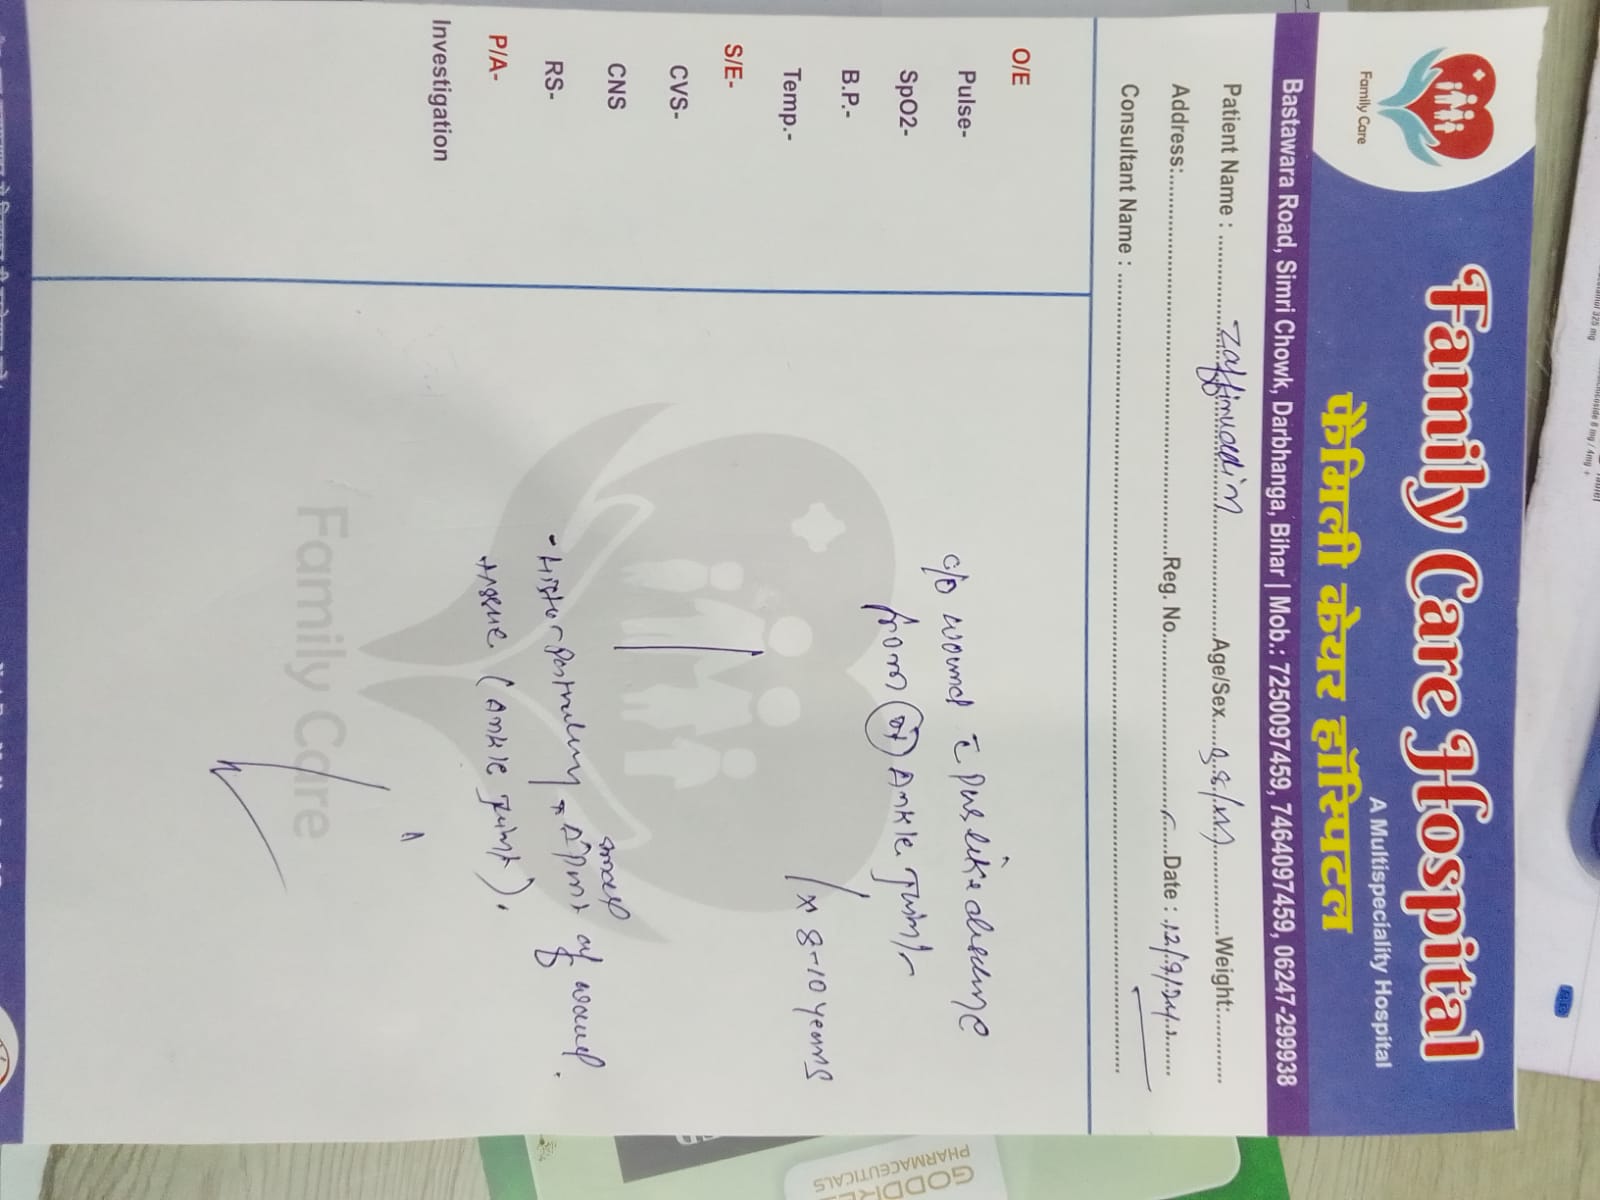 Family Care Hospital
फैमिली केयर हॉस्पिटल
A Multispeciality Hospital
Family Care
Bastawara Road, Simri Chowk, Darbhanga, Bihar | Mob.: 7250097459, 7464097459, 06247-299938
Patient Name : Zaffimuddin Age/Sex 38/M Weight:
Address: Reg. No. Date : 12/9/24
Consultant Name :
O/E
Pulse-
SpO2-
B.P.-
Temp.-
S/E-
CVS-
CNS
RS-
P/A-
Investigation
c/o wound c̄ pus like
from Ankle Joint
x 8-10 years
small
of wound.
(Ankle Joint).
Family Care
GODDRE
PHARMACEUTICALS
325 mg